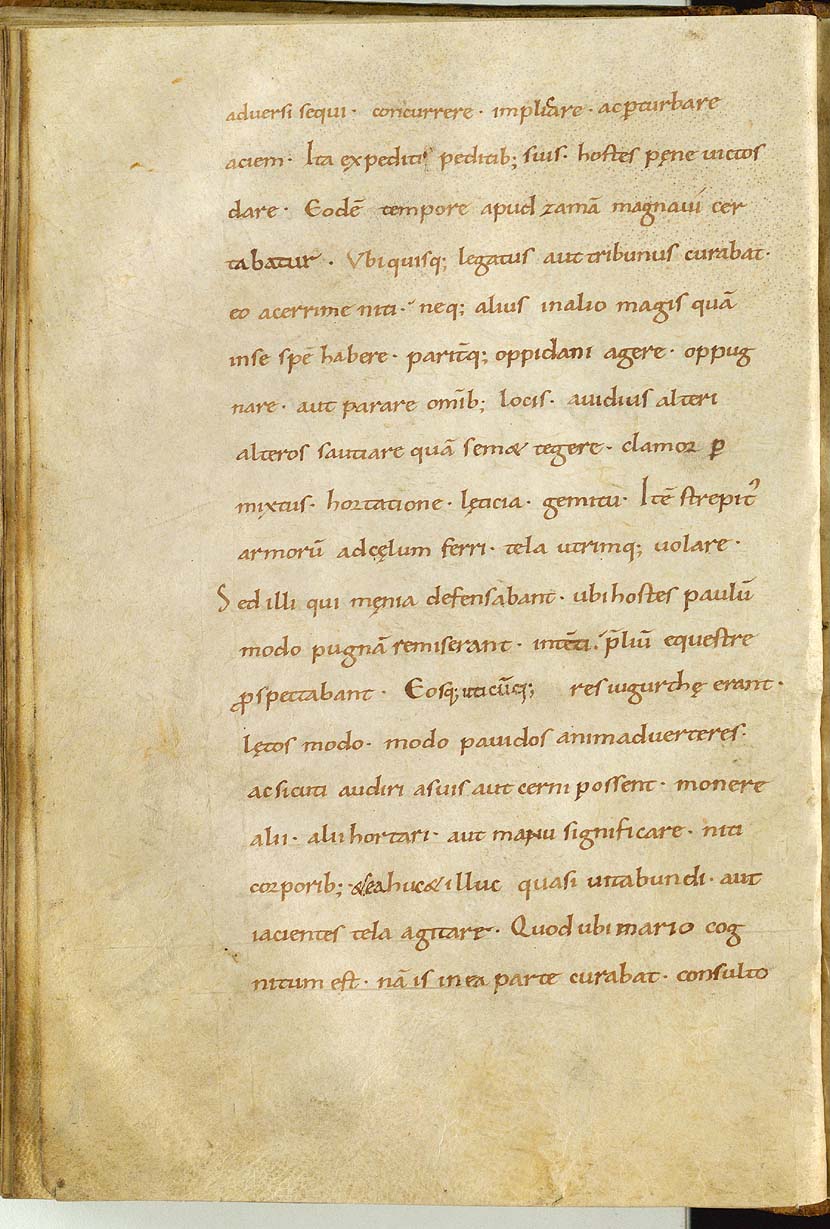 adversi sequi · concurrere · implicare · ac ꝑturbare
aciem · Ita expediti peditib; suis · hostes pęne victos
dare · Eodē tempore apud zamā magna ui cer
tabatur · Vbi quisq; legatus aut tribunus curabat ·
eo acerrime niti · neq; alius in alio magis quā
in se spē habere · parit̄q; oppidani agere · oppug
nare · aut parare om̄ib; locis · auidius alteri
alteros sautiare quā semæ tegere · clamor ꝑ
mixtus · hortatione · lęticia · gemitu · Itē strepit᾽
armorū ad cęlum ferri · tela utrimq; uolare ·
Sed illi qui męnia defensabant · ubi hostes paulū
modo pugnā remiserant · intēti · p̄liū equestre
ꝓspectabant · Eosq; uticūq; res iugurthę erant ·
lętos modo · modo pauidos animaduerteres ·
ac sicuti audiri a suis aut cerni possent · monere
alii · alii hortari · aut manu significare · niti
corporib; · & ea huc & illuc quasi uitabundi · aut
iacientes tela agitare · Quod ubi mario cog
nitum est · nā is in ea parte curabat · consulto